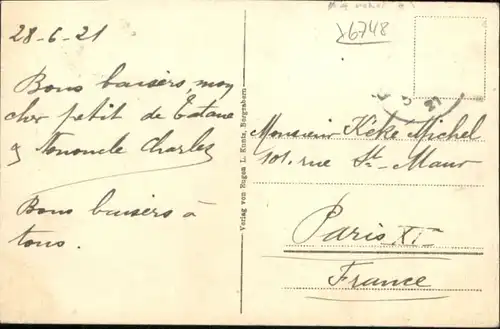 28-6-21
Bons baisers, mon
cher petit de Tatane
& Nononcle Charles
Bons baisers à
tous.
Verlag von Eugen L. Kuntz, Bergzabern
x6748
Monsieur Kéké Michel
101. rue St- Maur
Paris XIe
France